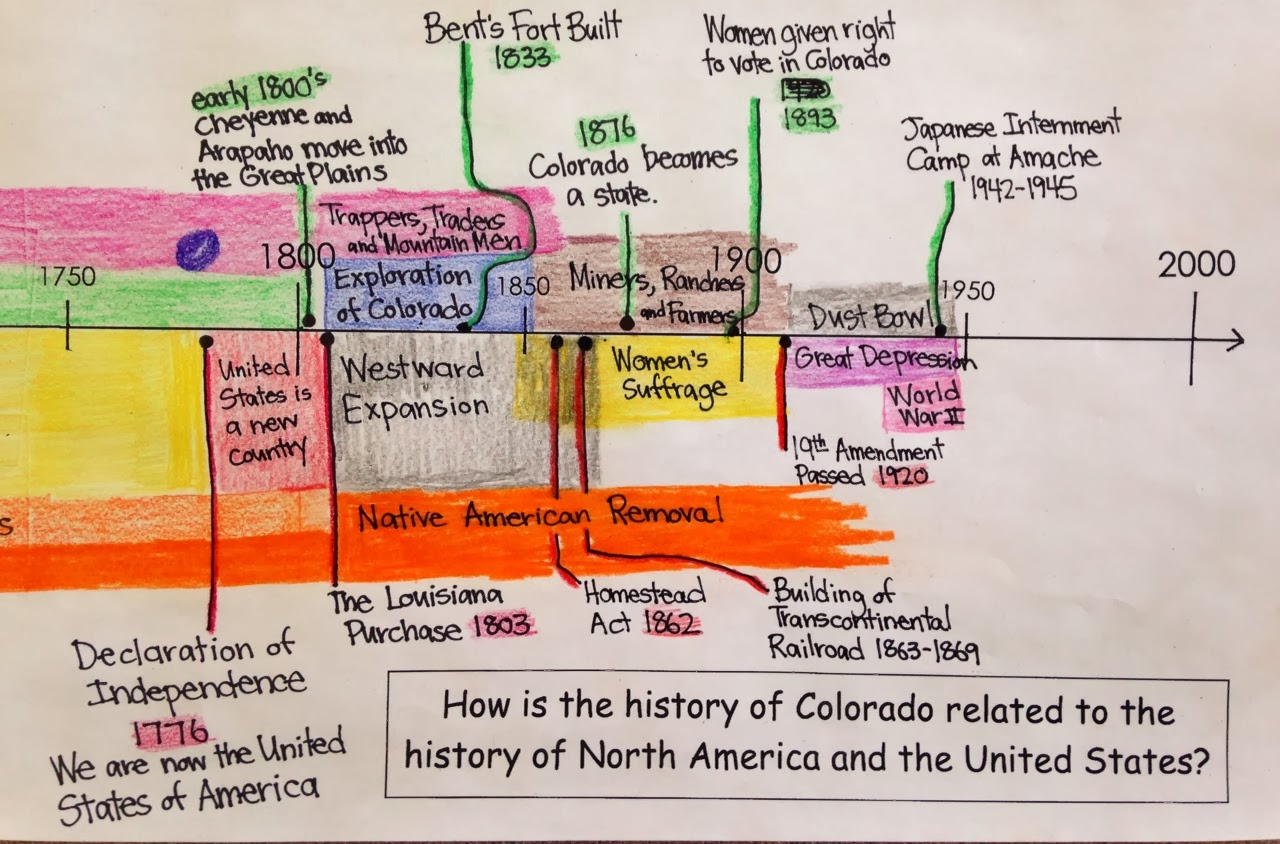 Bent's Fort Built
1833
Women given right
to vote in Colorado
1893
early 1800's
Cheyenne and
Arapaho move into
the Great Plains
1876
Colorado becomes
a state.
Japanese Internment
Camp at Amache
1942-1945
Trappers, Traders
and Mountain Men
1750
1800
Exploration
of Colorado
1850
Miners, Ranchers
and Farmers
1900
Dust Bowl
1950
2000
United
States is
a new
country
Westward
Expansion
Women's
Suffrage
Great Depression
World
War II
19th Amendment
Passed 1920
s
Native American Removal
The Louisiana
Purchase 1803
Homestead
Act 1862
Building of
Transcontinental
Railroad 1863-1869
Declaration of
Independence
1776
We are now the United
States of America
How is the history of Colorado related to the
history of North America and the United States?